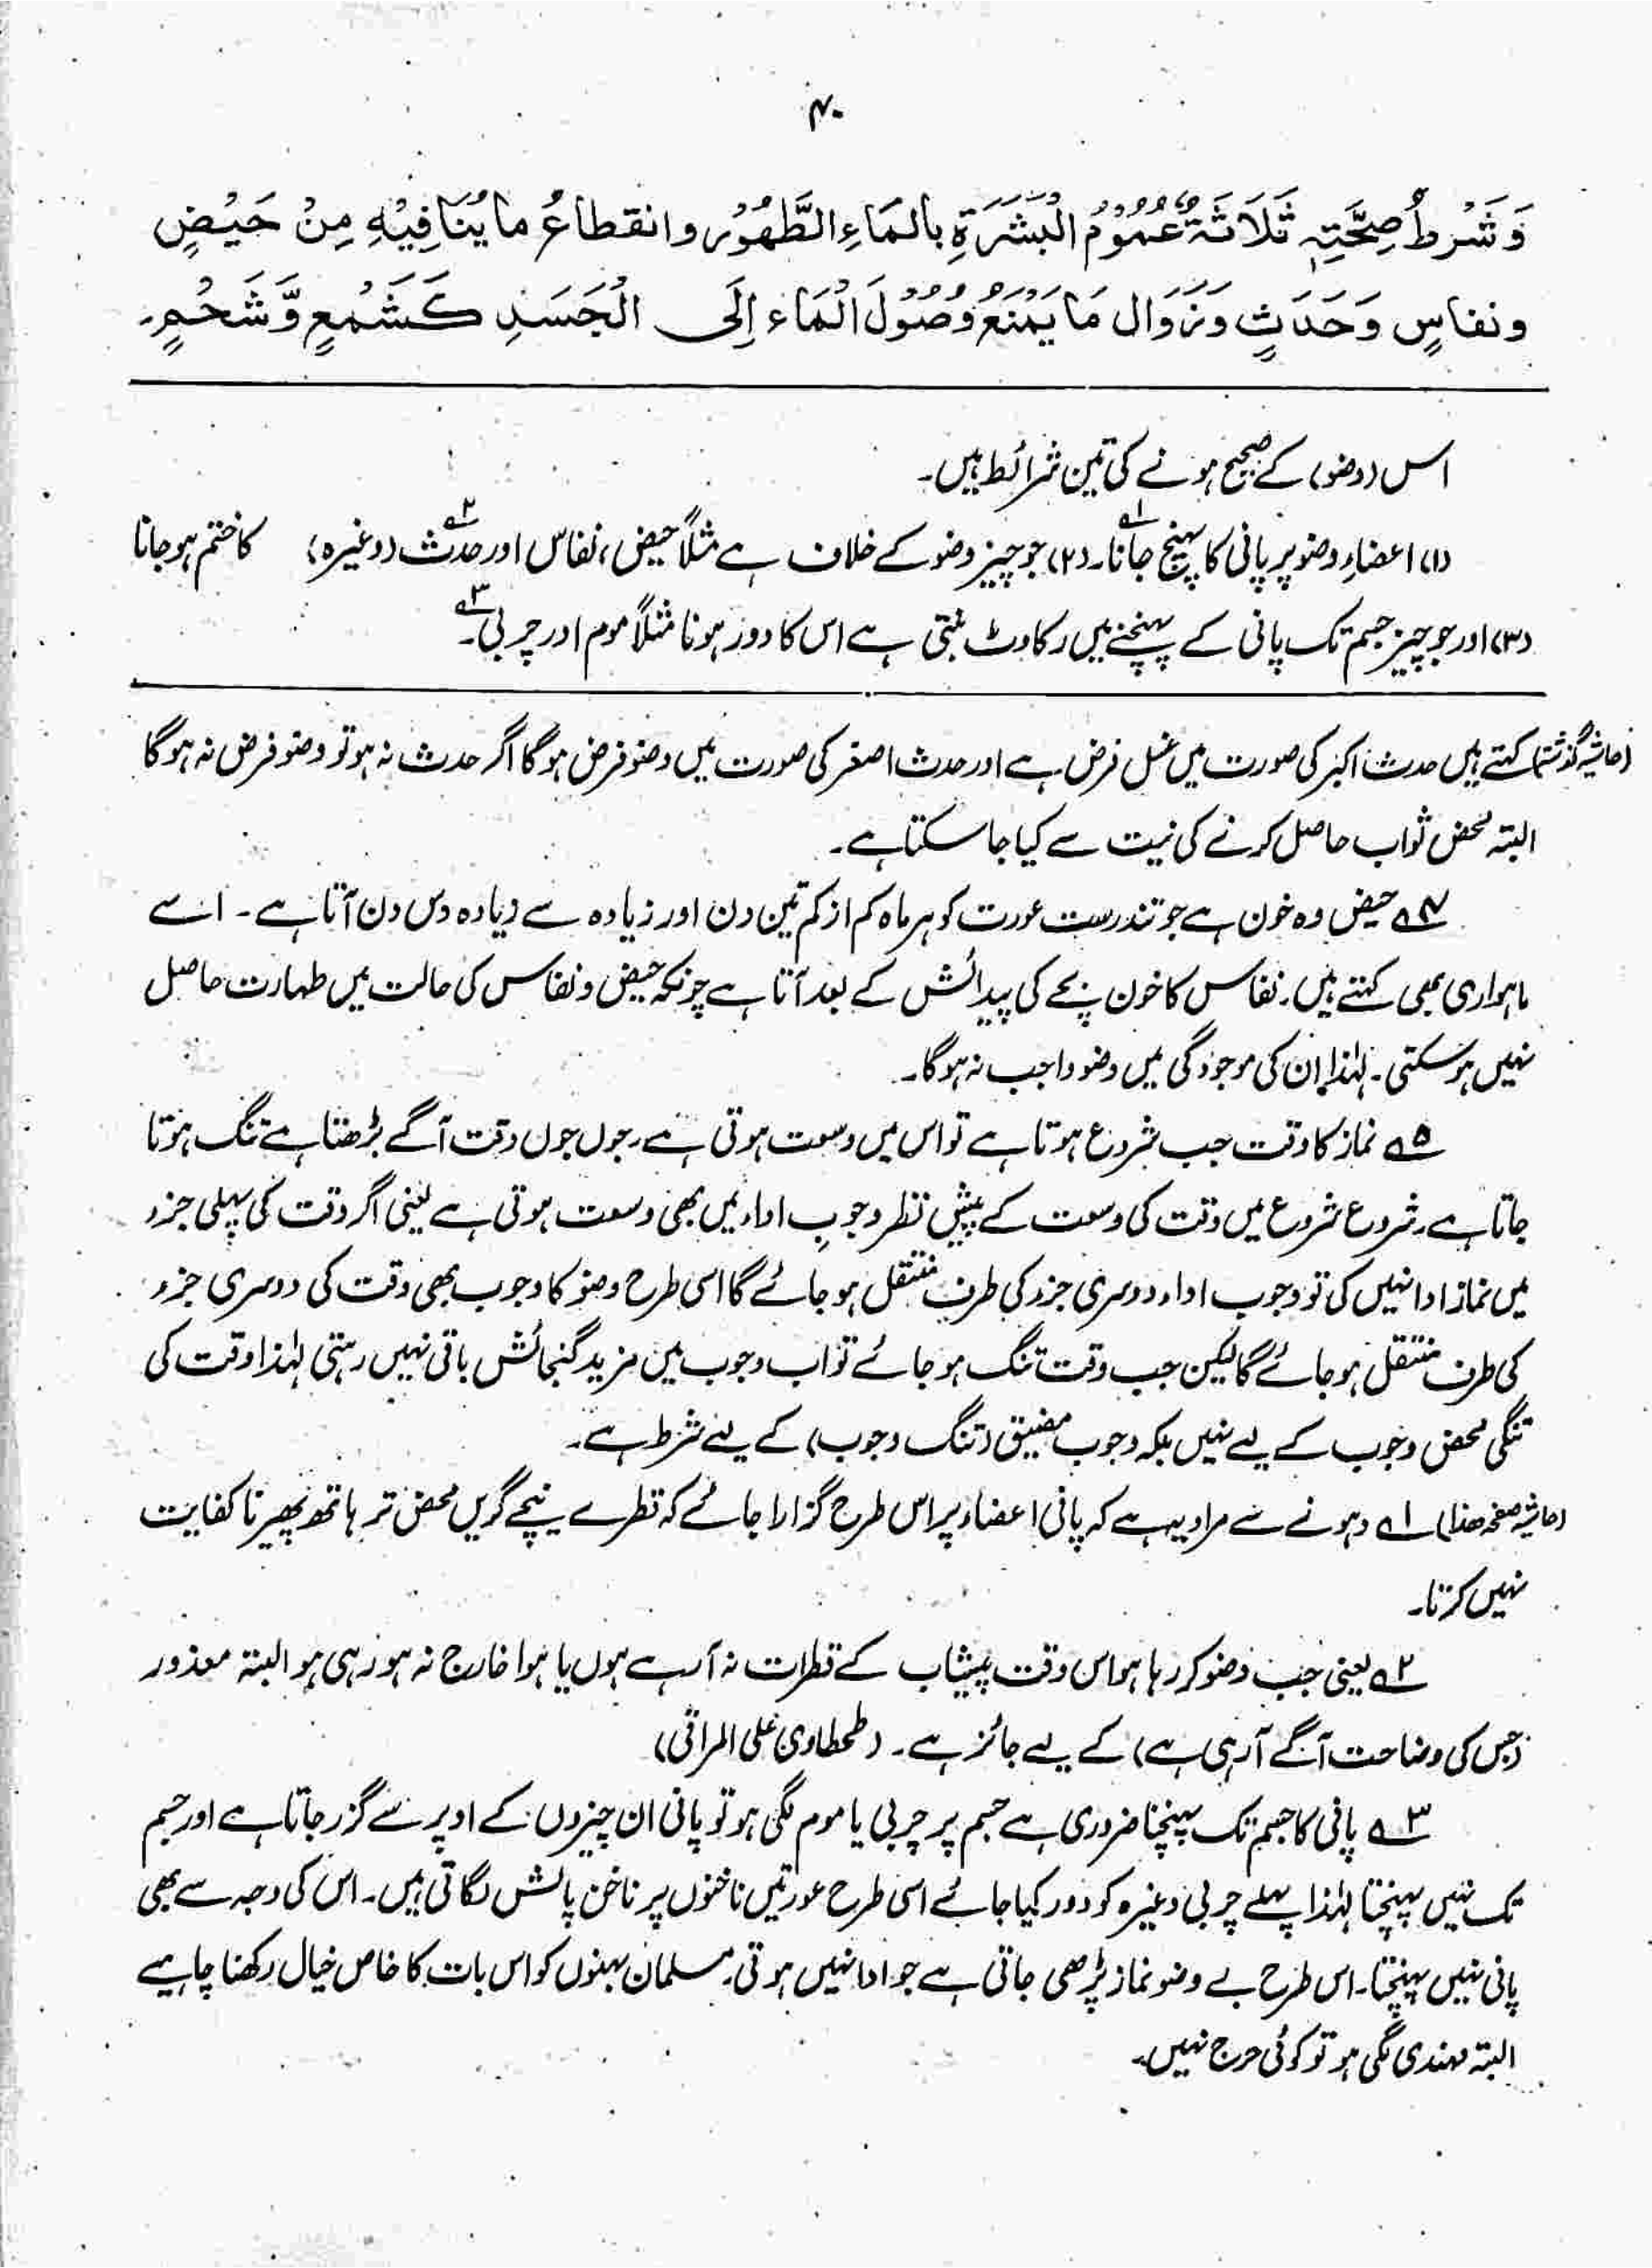 ۴۰
وَشَرْطُ صِحَّتِہٖ ثَلَاثَۃٌ عُمُوْمُ الْبَشَرَۃِ بالمَاءِ الطَّھُوْرِ وانقطاعُ ما یُنَافِیْہِ مِنْ حَیْضٍ
ونفاسٍ وَحَدَثٍ وَزَوَال مَا یَمْنَعُ وُصُوْلَ الْمَاء اِلَی الْجَسَدِ کَشَمْعٍ وَّشَحْمٍ۔
اس (وضو) کے صحیح ہونے کی تین شرائط ہیں۔
(۱) اعضاءِ وضو پر پانی کا پہنچ جانا۔۱؎ (۲) جو چیز وضو کے خلاف ہے مثلاً حیض، نفاس اور حدث۲؎ (وغیرہ) کا ختم ہو جانا
(۳) اور جو چیز جسم تک پانی کے پہنچنے میں رکاوٹ بنتی ہے اس کا دور ہونا مثلاً موم اور چربی۔۳؎
(حاشیہ گذشتہ) کہتے ہیں حدث اکبر کی صورت میں غسل فرض ہے اور حدث اصغر کی صورت میں وضو فرض ہوگا اگر حدث نہ ہو تو وضو فرض نہ ہوگا
البتہ محض ثواب حاصل کرنے کی نیت سے کیا جا سکتا ہے۔
۴؎ حیض وہ خون ہے جو تندرست عورت کو ہر ماہ کم از کم تین دن اور زیادہ سے زیادہ دس دن آتا ہے۔ اسے
ماہواری بھی کہتے ہیں۔ نفاس کا خون بچے کی پیدائش کے بعد آتا ہے چونکہ حیض و نفاس کی حالت میں طہارت حاصل
نہیں ہو سکتی۔ لہٰذا ان کی موجودگی میں وضو واجب نہ ہوگا۔
۵؎ نماز کا وقت جب شروع ہوتا ہے تو اس میں وسعت ہوتی ہے۔ جوں جوں وقت آگے بڑھتا ہے تنگ ہوتا
جاتا ہے۔ شروع شروع میں وقت کی وسعت کے پیش نظر وجوبِ اداء میں بھی وسعت ہوتی ہے یعنی اگر وقت کی پہلی جزء
میں نماز ادا نہیں کی تو وجوب اداء دوسری جزء کی طرف منتقل ہو جائے گا اسی طرح وضو کا وجوب بھی وقت کی دوسری جزء
کی طرف منتقل ہو جائے گا لیکن جب وقت تنگ ہو جائے تو اب وجوب میں مزید گنجائش باقی نہیں رہتی لہٰذا وقت کی
تنگی محض وجوب کے لیے نہیں بلکہ وجوب مضیق (تنگ وجوب) کے لیے شرط ہے۔
(حاشیہ صفحہ ھذا) ۱؎ دہونے سے مراد یہ ہے کہ پانی اعضاء پر اس طرح گزارا جائے کہ قطرے نیچے گریں محض تر ہاتھ پھیرنا کفایت
نہیں کرتا۔
۲؎ یعنی جب وضو کر رہا ہو اس وقت پیشاب کے قطرات نہ آ رہے ہوں یا ہوا خارج نہ ہو رہی ہو البتہ معذور
(جس کی وضاحت آگے آ رہی ہے) کے لیے جائز ہے۔ (طحطاوی علی المراقی)
۳؎ پانی کا جسم تک پہنچنا ضروری ہے جسم پر چربی یا موم لگی ہو تو پانی ان چیزوں کے اوپر سے گزر جاتا ہے اور جسم
تک نہیں پہنچتا لہٰذا پہلے چربی وغیرہ کو دور کیا جائے اسی طرح عورتیں ناخنوں پر ناخن پالش لگاتی ہیں۔ اس کی وجہ سے بھی
پانی نہیں پہنچتا۔ اس طرح بے وضو نماز پڑھی جاتی ہے جو ادا نہیں ہوتی۔ مسلمان بہنوں کو اس بات کا خاص خیال رکھنا چاہیے
البتہ مہندی لگی ہو تو کوئی حرج نہیں۔